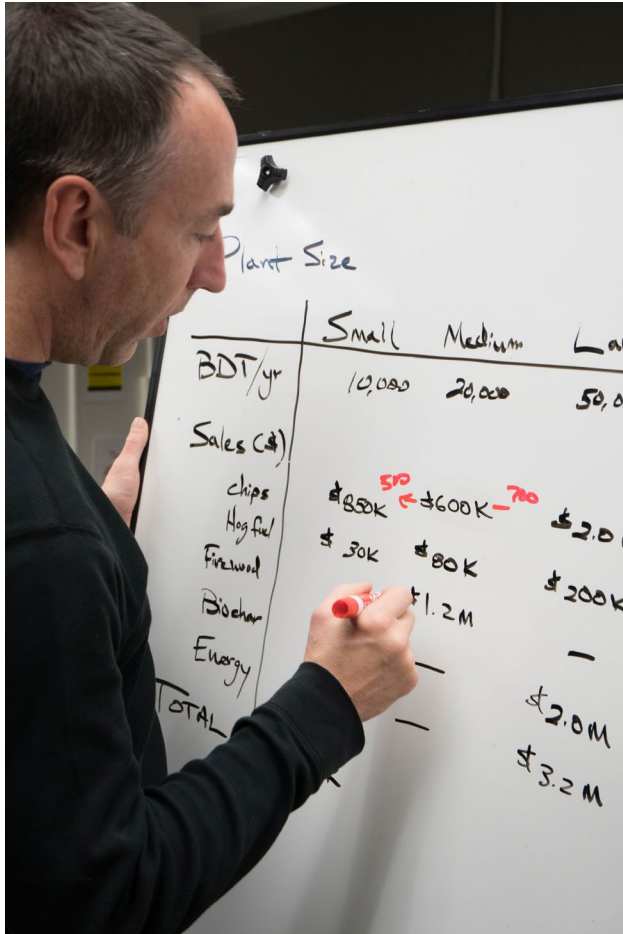 Plant Size
Small Medium La
BDT/yr 10,000 20,000 50,0
Sales ($)
500 700
chips $850K ← $600K – $2.0
Hog fuel $ 30K $80K $200K
Firewood $1.2M
Biochar — —
Energy — $2.0M
TOTAL K $3.2M